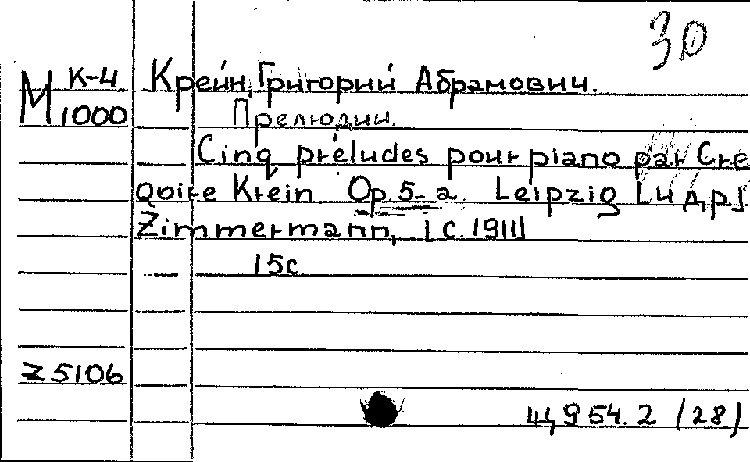 30
М К-4 Крейн, Григорий Абрамович.
1000 Прелюдии.
Cinq préludes pour piano par Gre
goire Krein Op 5-a. Leipzig [и др]
Zimmermann, [с. 191
15с
Z 5106
Щ954.2 (28)